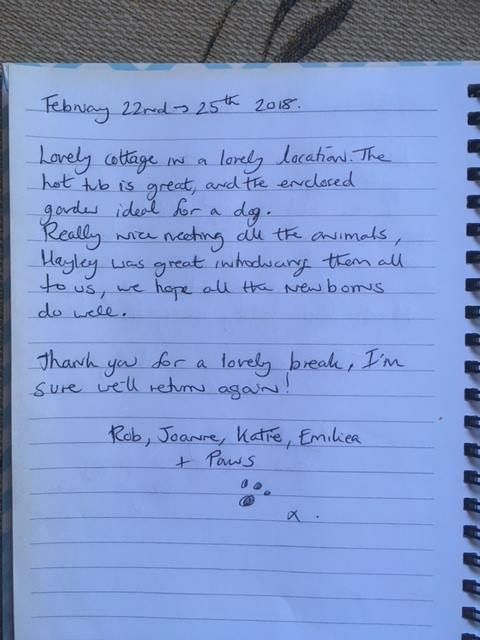 February 22nd → 25th 2018.
Lovely cottage in a lovely location. The
hot tub is great, and the enclosed
garden ideal for a dog.
Really nice meeting all the animals,
Hayley was great introducing them all
to us, we hope all the newborns
do well.
Thank you for a lovely break, I'm
sure we'll return again!
Rob, Joanne, Katie, Emiliea
+ Paws
x .